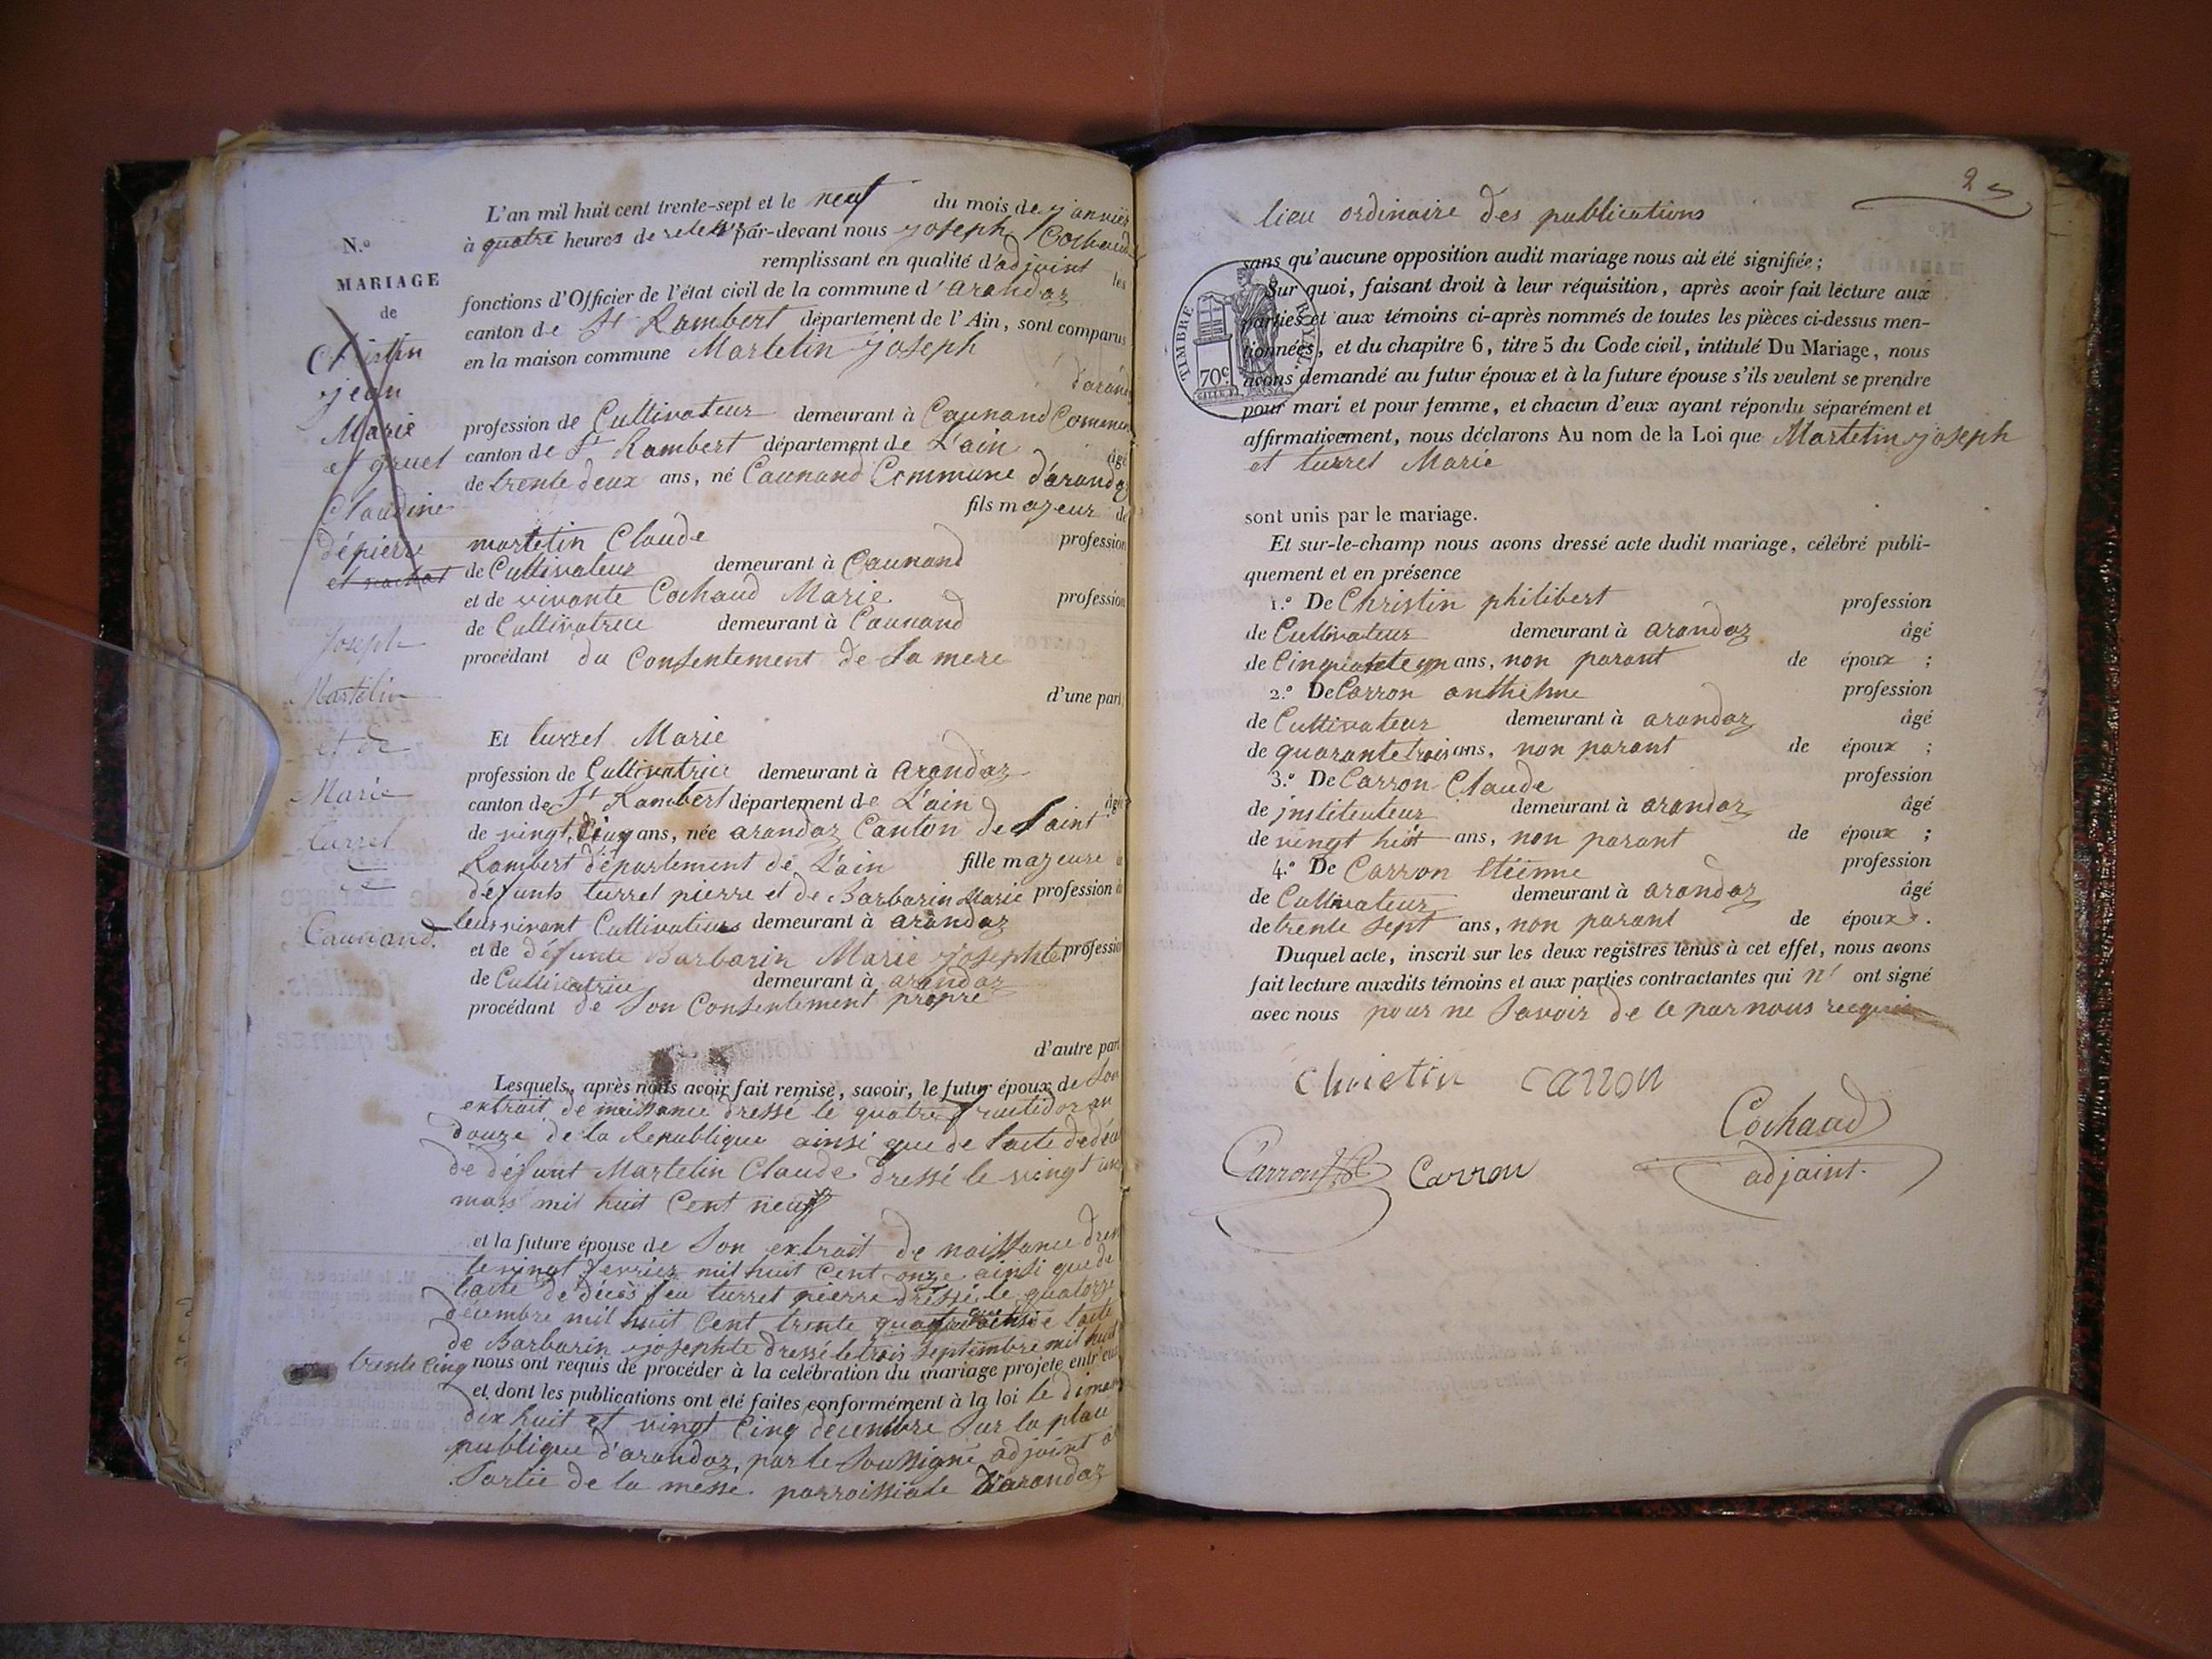 N.o
MARIAGE
de
Christin
jean
Marie
et gruel
Claudine
dépierre
et
Joseph
Martelin
et de
Marie
turrel
Caunand.
L'an mil huit cent trente-sept et le neuf du mois de janvier
à quatre heures de relevé par-devant nous joseph Cochaud
remplissant en qualité d'adjoint les
fonctions d'Officier de l'état civil de la commune d'arandaz
canton de St Rambert département de l'Ain, sont comparus
en la maison commune Martelin joseph
d'arand
profession de Cultivateur demeurant à Caunand Commun
canton de St Rambert département de L'ain âgé
de trente deux ans, né Caunand Commune d'arandaz
fils majeur de
martelin Claude profession
de Cultivateur demeurant à Caunand
et de vivante Cochaud Marie profession
de Cultivatrice demeurant à Caunand
procédant du Consentement de sa mere
d'une part,
Et turrel Marie
profession de Cultivatrice demeurant à arandaz
canton de St Rambert département de L'ain âgée
de vingt cinq ans, née arandaz Canton de Saint
Rambert département de L'ain fille majeure
défunts turrel pierre et de Barbarin Marie profession
leur vivant Cultivateurs demeurant à arandaz
et de défunte Barbarin Marie josephte profession
de Cultivatrice demeurant à arandaz
procédant de Son Consentement propre
d'autre part
Lesquels, après nous avoir fait remise, savoir, le futur époux de Son
extrait de naissance dressé le quatre fructidor an
douze de la Republique ainsi que de l'acte de déc
de défunt Martelin Claude dressé le vingt un
mars mil huit Cent neuf
et la future épouse de Son extrait de naissance dres
le vingt fevrier mil huit Cent onze ainsi que de
l'acte de décès feu turrel pierre dressé le quatorze
decembre mil huit Cent trente quatre l'acte
de Barbarin josephte dressé le trois Septembre mil huit
trente Cinq nous ont requis de procéder à la celébration du mariage projeté entr'eux
et dont les publications ont été faites conformément à la loi le diman
dix huit et vingt Cinq decembre Sur la place
publique d'arandaz, par le Soussigné adjoint a
Sortie de la messe parroissiale d'arandaz
2
lieu ordinaire des publications
sans qu'aucune opposition audit mariage nous ait été signifiée;
Sur quoi, faisant droit à leur réquisition, après avoir fait lecture aux
parties et aux témoins ci-après nommés de toutes les pièces ci-dessus men-
tionnées, et du chapitre 6, titre 5 du Code civil, intitulé Du Mariage, nous
avons demandé au futur époux et à la future épouse s'ils veulent se prendre
pour mari et pour femme, et chacun d'eux ayant répondu séparément et
affirmativement, nous déclarons Au nom de la Loi que Martelin joseph
et turrel Marie
TIMBRE ROYAL
70c
sont unis par le mariage.
Et sur-le-champ nous avons dressé acte dudit mariage, célébré publi-
quement et en présence
1.o De Christin philibert profession
de Cultivateur demeurant à arandaz âgé
de Cinquante un ans, non parant de époux ;
2.o De Carron anthelme profession
de Cultivateur demeurant à arandaz âgé
de quarante trois ans, non parant de époux ;
3.o De Carron Claude profession
de jnstituteur demeurant à arandaz âgé
de vingt huit ans, non parant de époux ;
4.o De Carron Etienne profession
de Cultivateur demeurant à arandaz âgé
de trente Sept ans, non parant de époux.
Duquel acte, inscrit sur les deux registres tenus à cet effet, nous avons
fait lecture auxdits témoins et aux parties contractantes qui n' ont signé
avec nous pour ne Savoir de ce par nous requis
Christin Carron
Cochaud
adjoint.
Carron Carron